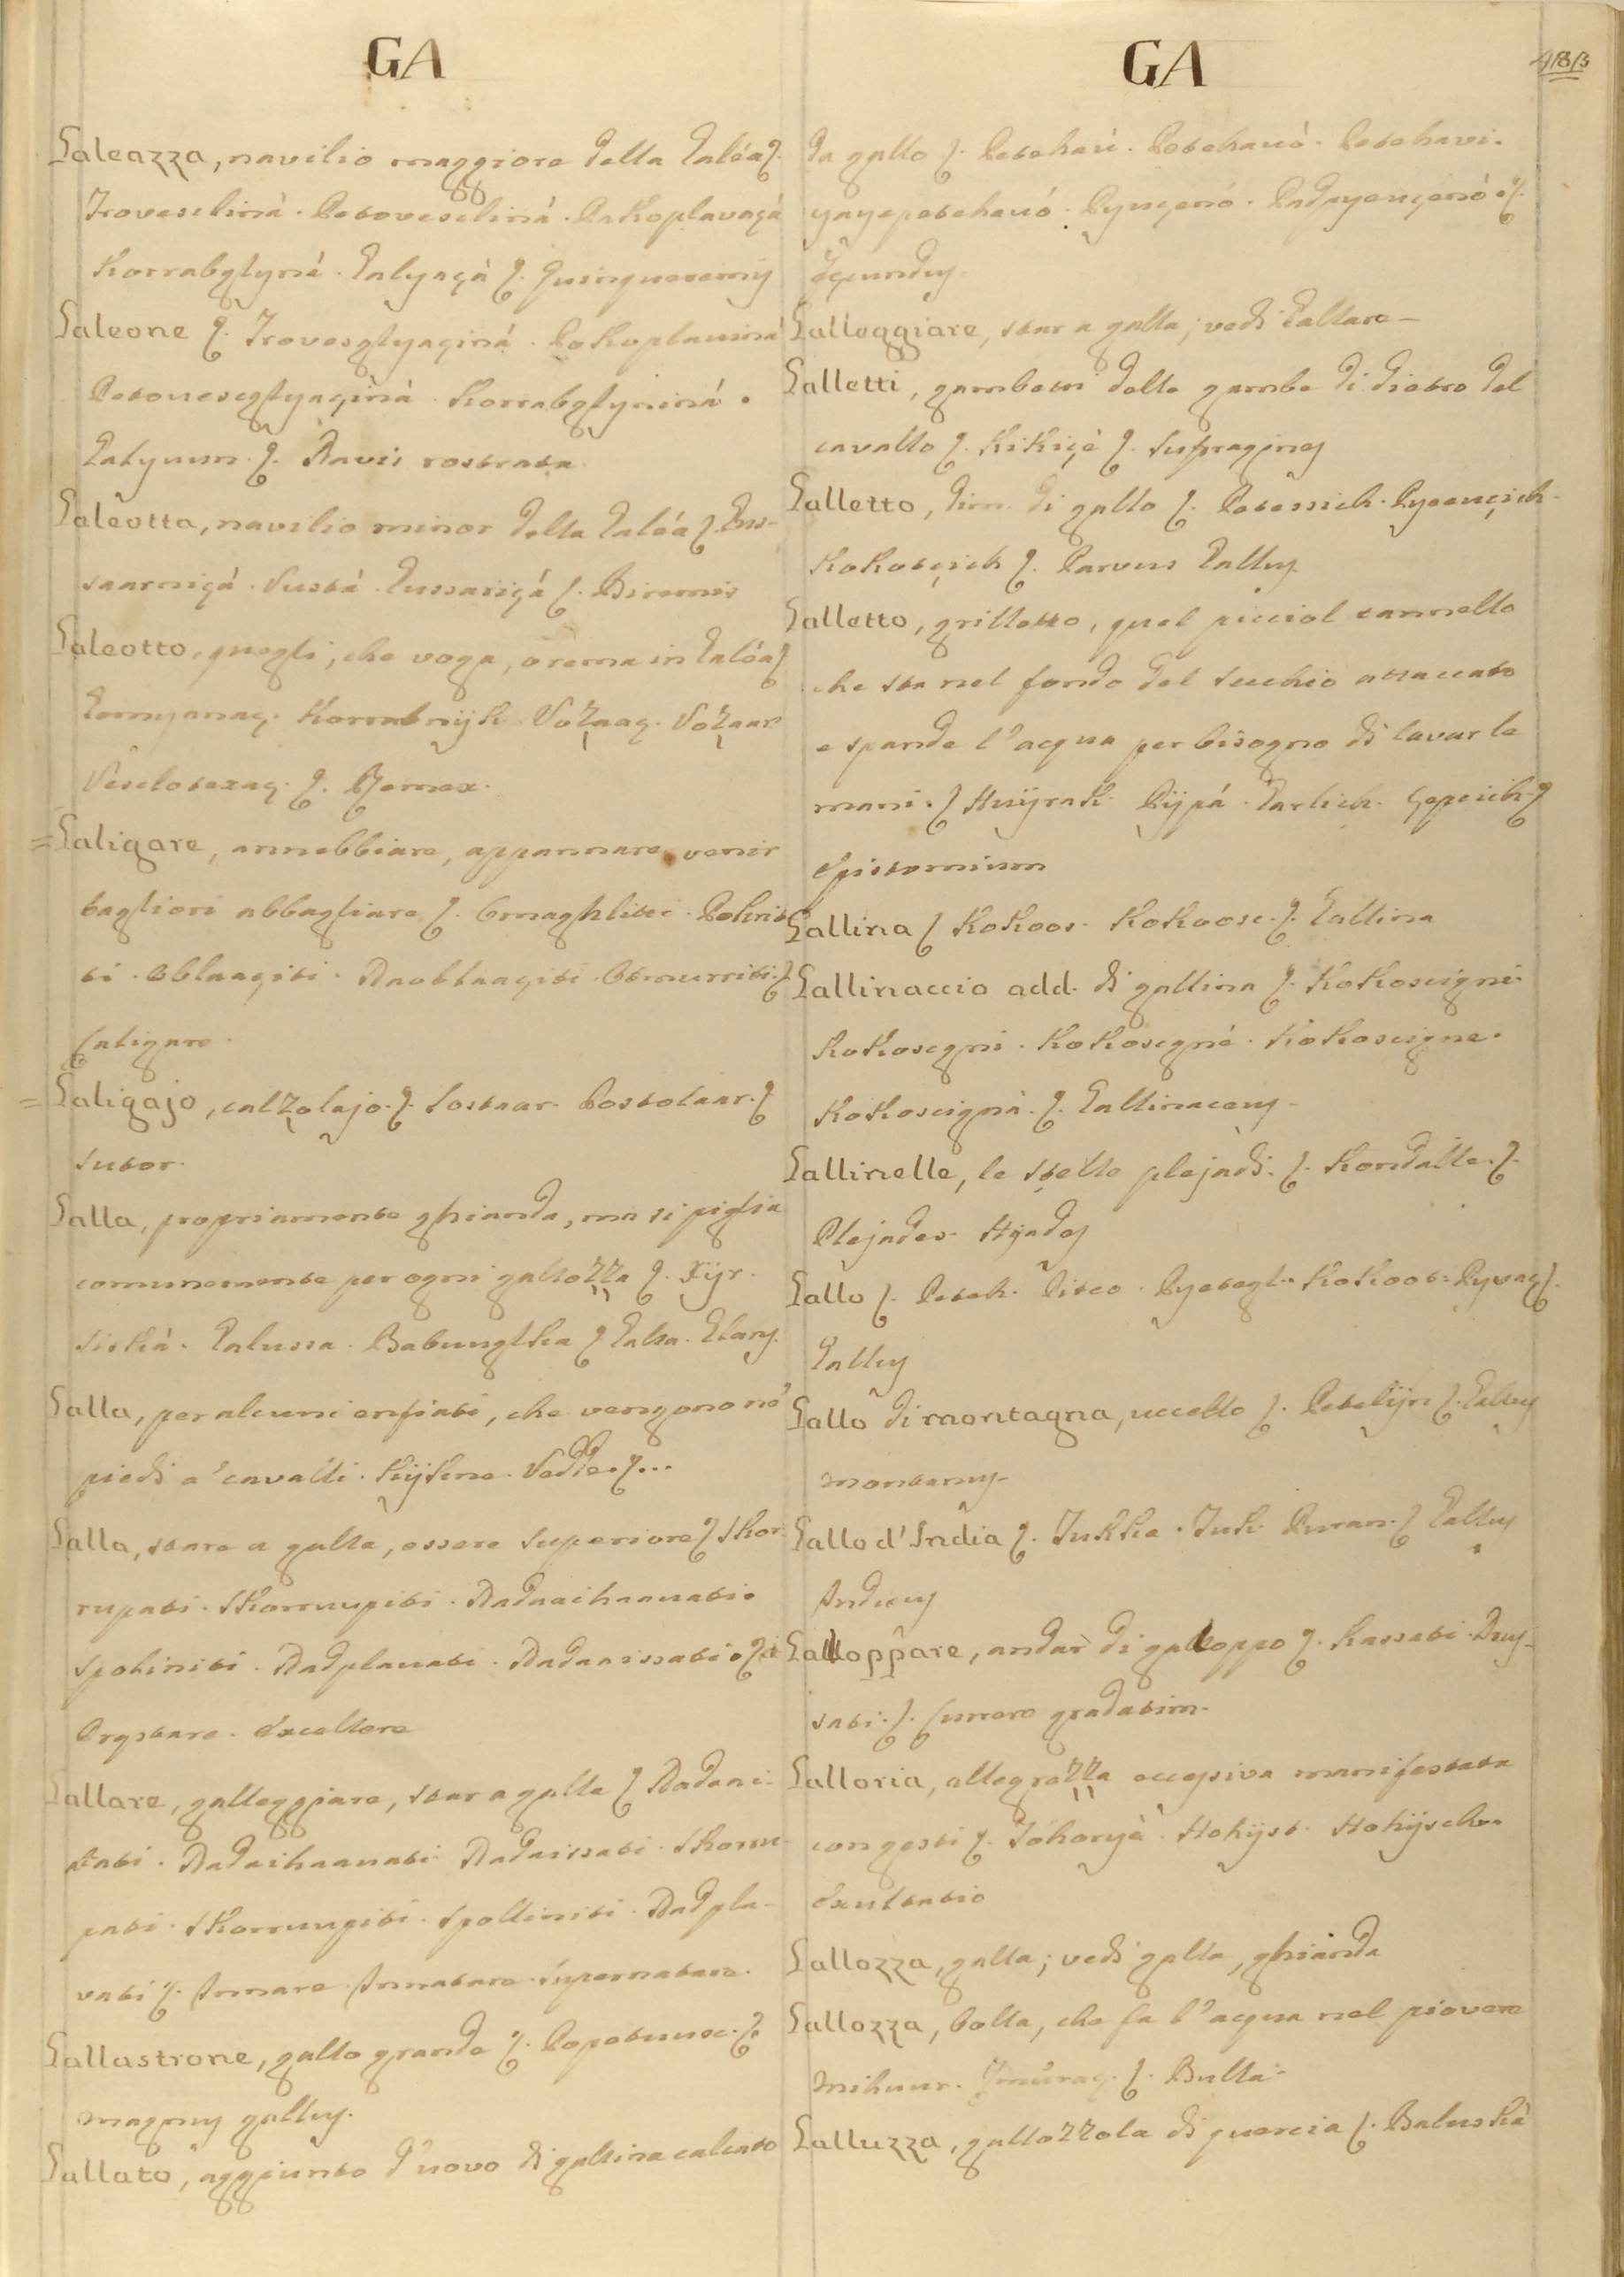 GA
Galeazza, navilio maggiore della Galéa
Trovesclinà. Petovesclinà. Pakoplavaçà
Korrabglynà. Galyaçà. Quinqueremis
Galeone. Trovesglyaçinà.
Petovesseglyaçinà. Korrabglyninà.
Galyuun. Navis rostrata.
Galeotta, navilio minor della Galéa. Gus-
saarniçà. Fustà. Gussariçà. Biremis
Galeotto, quegli, che voga, o rema in Galéa
Gemyanaç. Korrabnijk. Vozaaç. Vozaar
Veslotexaç. Remex.
Galigare, annebbiare, appannare, venir
bagliori abbagliare. Omaghlitti. Pokrit-
ti. Oblaaçiti. Naoblaaçiti. Otmurriti.
Caligare.
Galigajo, calzolajo. Sostaar. Postolaar.
Sutor.
Galla, propriamente ghianda, ma si piglia
comunemente per ogni gallozza. Xijr.
Siskà. Galussa. Babunglka. Galla. Glans.
Galla, per alcuni enfiati, che vengono ne'
piedi a' cavalli. Kijkne. Vedde...
Galla, stare a galla, essere superiore. Skor-
rupati. Skorruupiti. Nadaaihaauati.
Spoliniti. Nadplauati. Nadaaissati.
Exstare. Excellere
Gallare, galleggiare, star a galla. Nadaai-
Nadaihaauati. Nadaissati. Skorru-
pati. Skorruupiti. Spolliniti. Nadpla-
vati. Innare. Innatare. Supernatare.
Gallastrone, gallo grande. Popetuusc.
magnus gallus.
Gallato, aggiunto d'uovo di gallina calcato
GA
483
da gallo. Petehaù. Petehauò. Petehavi.
yayepetehauó. Pyuçenó. Padpyençenó.
Fecundus.
Galleggiare, star a galla; vedi Gallare
Galletti, gambetti delle gambe di dietro del
cavallo. Kikiçè. Suffragines
Galletto, dim. di gallo. Petessich. Pyeauçich
Kokotçich. Parvus Gallus.
Galletto, grilletto, quel picciol cannello
che sta nel fondo del secchio attaccato
e spande l'acqua per bisogno di lavar le
mani. Hnijrak. Pijpà. Garlich. Çepcich
Epistomium
Gallina. Kokoos. Kokoosc. Gallina
Gallinaccio add. di gallina. Kokoscigni
Kokosegni. Kokosegnè. Kokoscigne.
Kokoscignà. Gallinaceus
Gallinelle, le stelle plejadi. Kondalle.
Plejades. Hyades
Gallo. Peteh. Piteo. Pyetegl. Kokoot. Pyvaç.
Gallus
Gallo di montagna, uccello. Petelijn. Gallus
montanus
Gallo d'India. Tukka. Tuk. Puran. Gallus
Indicus
Galloppare, andar di galoppo. Kassati. Drus-
sati. Currere gradatim.
Galloria, allegrezza eccessiva manifestata
con gesti. Tohoryà. Hohijst. Hohijscka
Exultatio
Gallozza, galla; vedi galla, ghianda
Gallozza, bolla, che fa l'acqua nel piovere
Mihuur. Bulla.
Galluzza, gallozzola di quercia. Baluskà